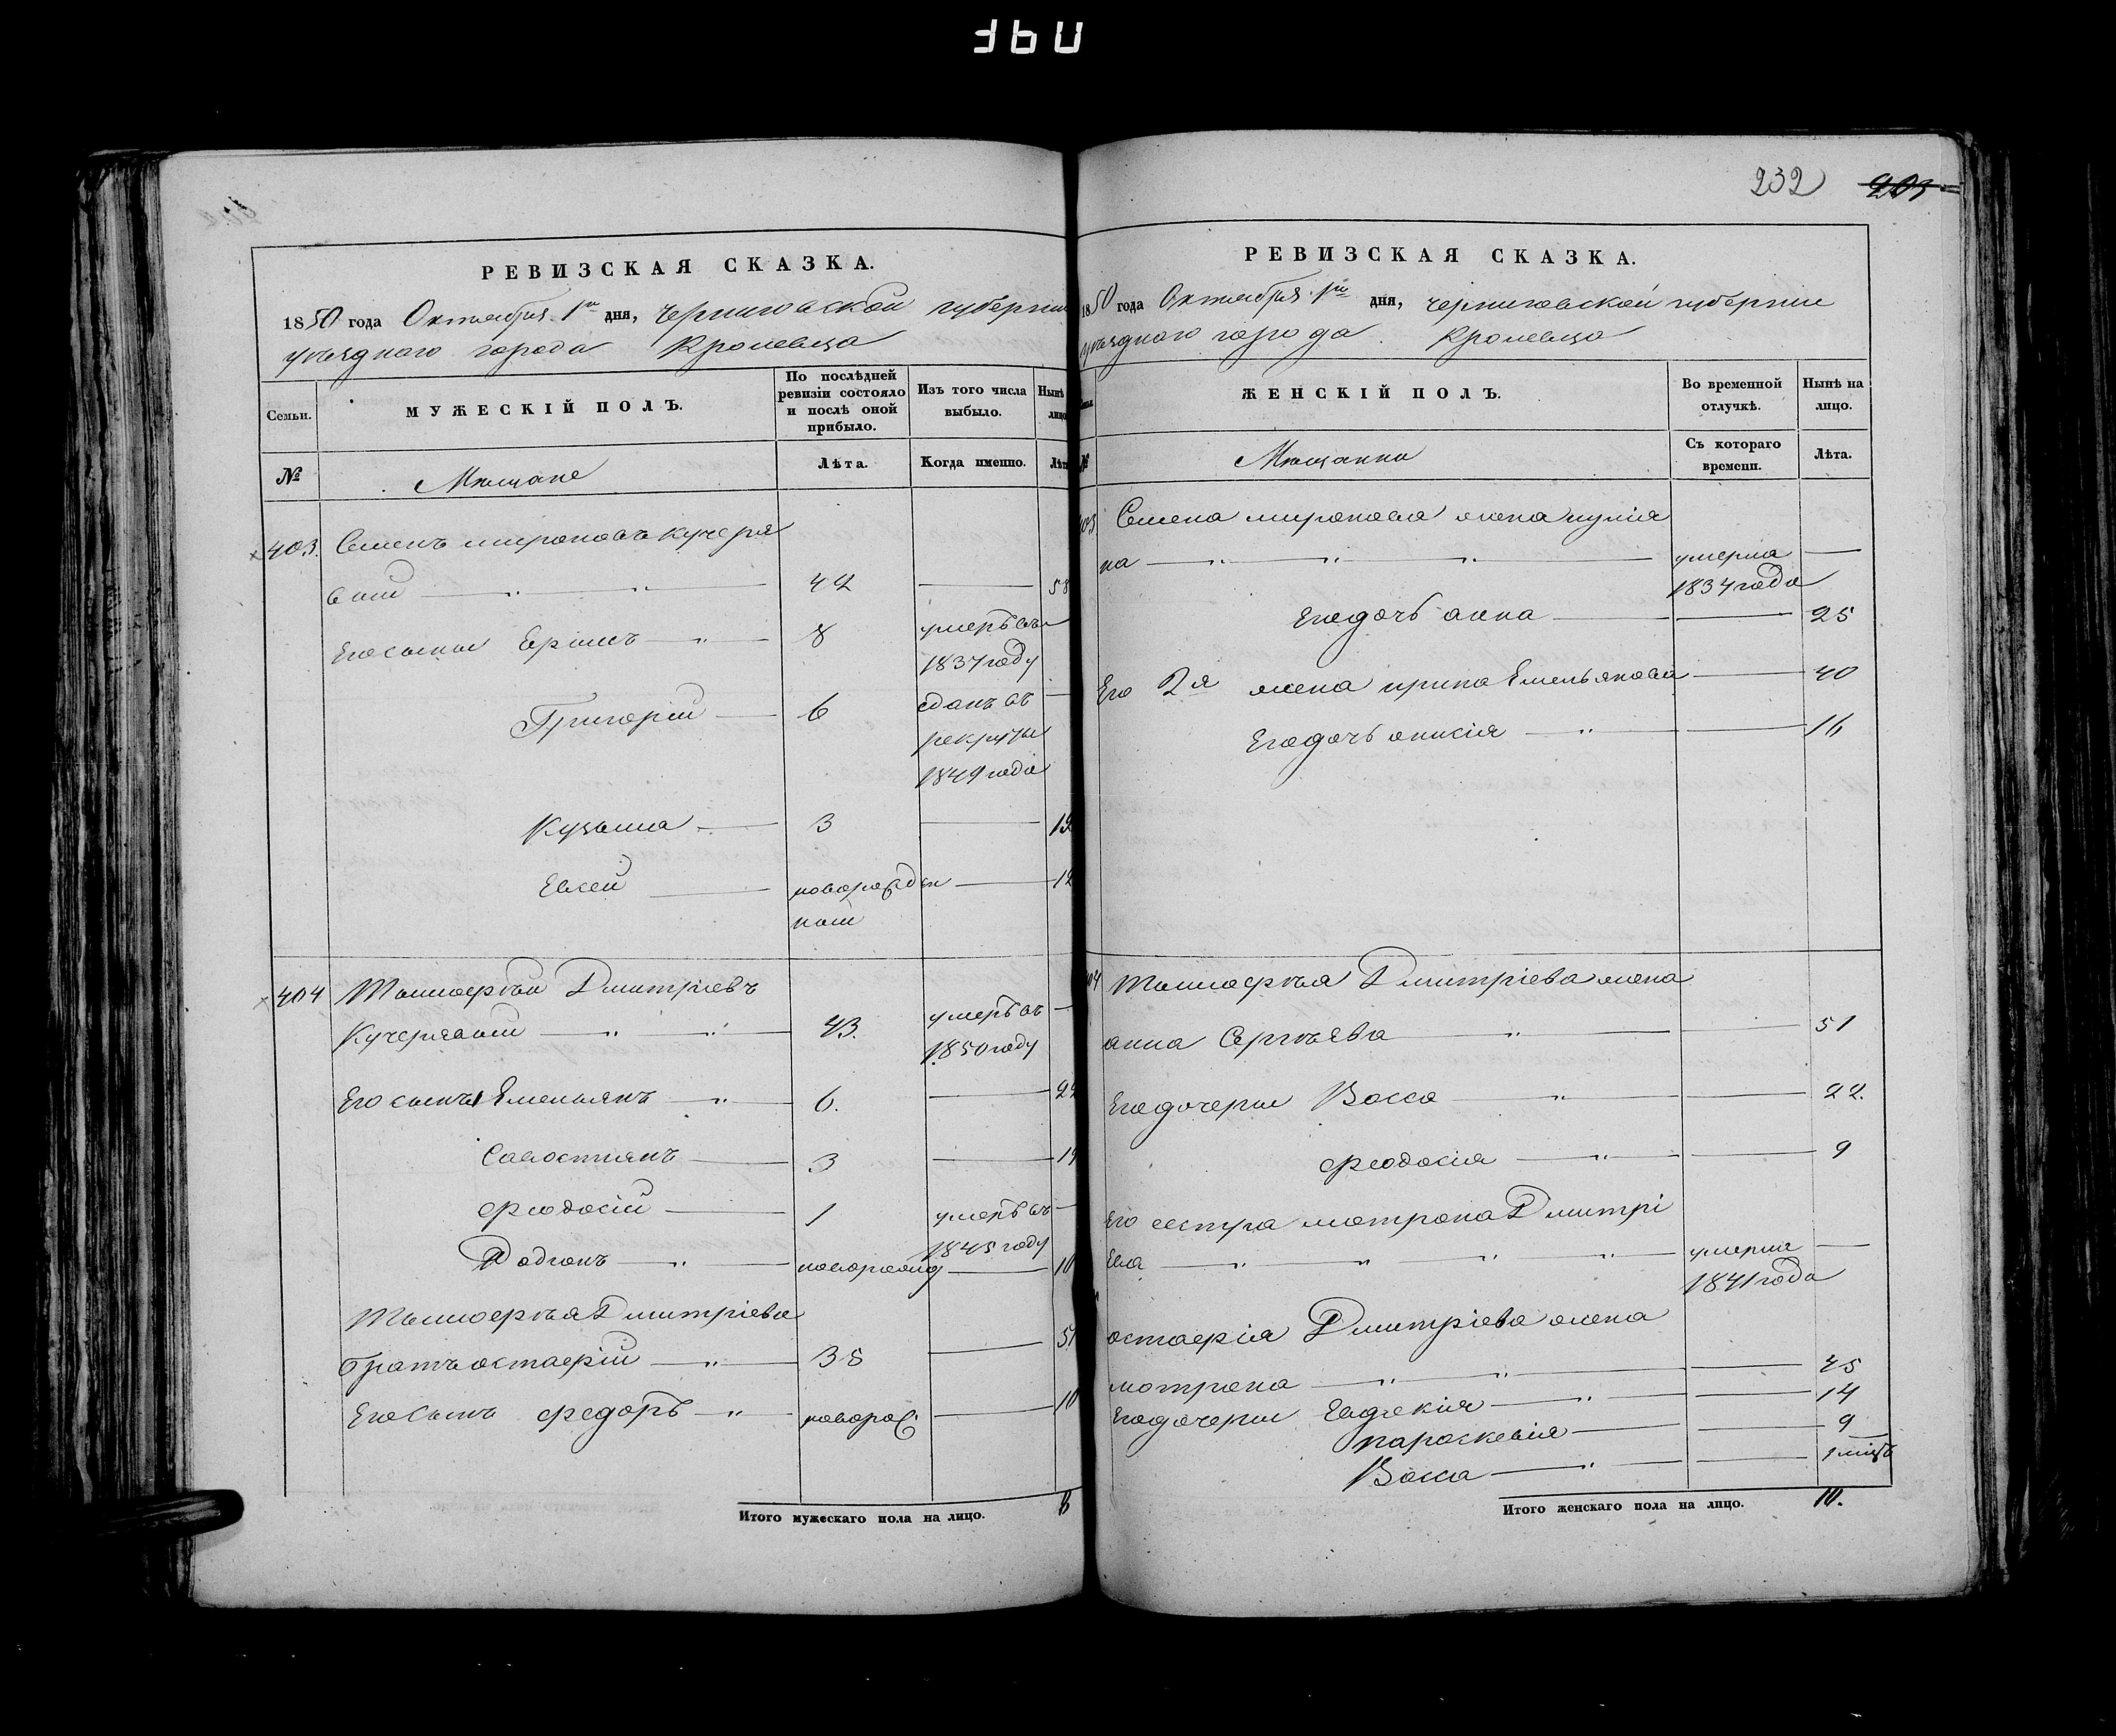 232 203
РЕВИЗСКАЯ СКАЗКА.
1850 года Октября 1го дня, Черниговской губернии
уѣзднаго города Кролевца
Семьи.
МУЖЕСКІЙ ПОЛЪ.
По послѣдней ревизіи состояло и послѣ оной прибыло.
Изъ того числа выбыло.
Нынѣ на лицо
№
Мѣщане
Лѣта.
Когда именно.
Лѣта
403. Семенъ мироновъ кучеря
вый — " — " — 42 — 58
Его сыны Ефимъ — " — 8 умеръ въ
1837 году
Григорій — 6 сданъ въ —
рекруты
1849 года
Кузьма — 3 — 19
Евсей — новорожден — 12
ный
404 Тимофѣй Дмитріевъ
Кучерявый — " — " — 43. умеръ въ —
1850 году
Его сыны Емельянъ — " — 6. — 22
Савостьянъ — 3 — 19
Феодосій — 1 умеръ въ —
1845 году
Родіонъ — " — новорожд — 10
Тимофѣя Дмитріева
братъ остафій — " — 35 — 51
Его Сынъ федоръ — " — новорож. — 10
Итого мужескаго пола на лицо. 8
РЕВИЗСКАЯ СКАЗКА.
1850 года Октября 1го дня, Черниговской губерніи
уѣзднаго города Кролевца
ЖЕНСКІЙ ПОЛЪ.
Во временной отлучкѣ.
Нынѣ на лицо.
№
Мѣщанки
Съ котораго времени.
Лѣта.
403 Семена миронова жена
на — " — " — " — умерла —
1834 года
Его дочь анна — — 25
Его 2я жена ирина Емельянова — 40
Его дочь анисія — " — — 16
404 Тимофѣя Дмитріева жена
анна Сергѣева — " — — 51
Его дочери Васса — " — — 22.
феодосія — " — — 9
Его сестра мотрона Дмитрі
ева — " — " — " — " — умерла —
1841 года
остафія Дмитріева жена
мотрона — " — " — — 45
Его дочери Евдокія — " — — 14
параскевія — — 9
Васса — " — — 1 мѣсцъ
Итого женскаго пола на лицо. 10.